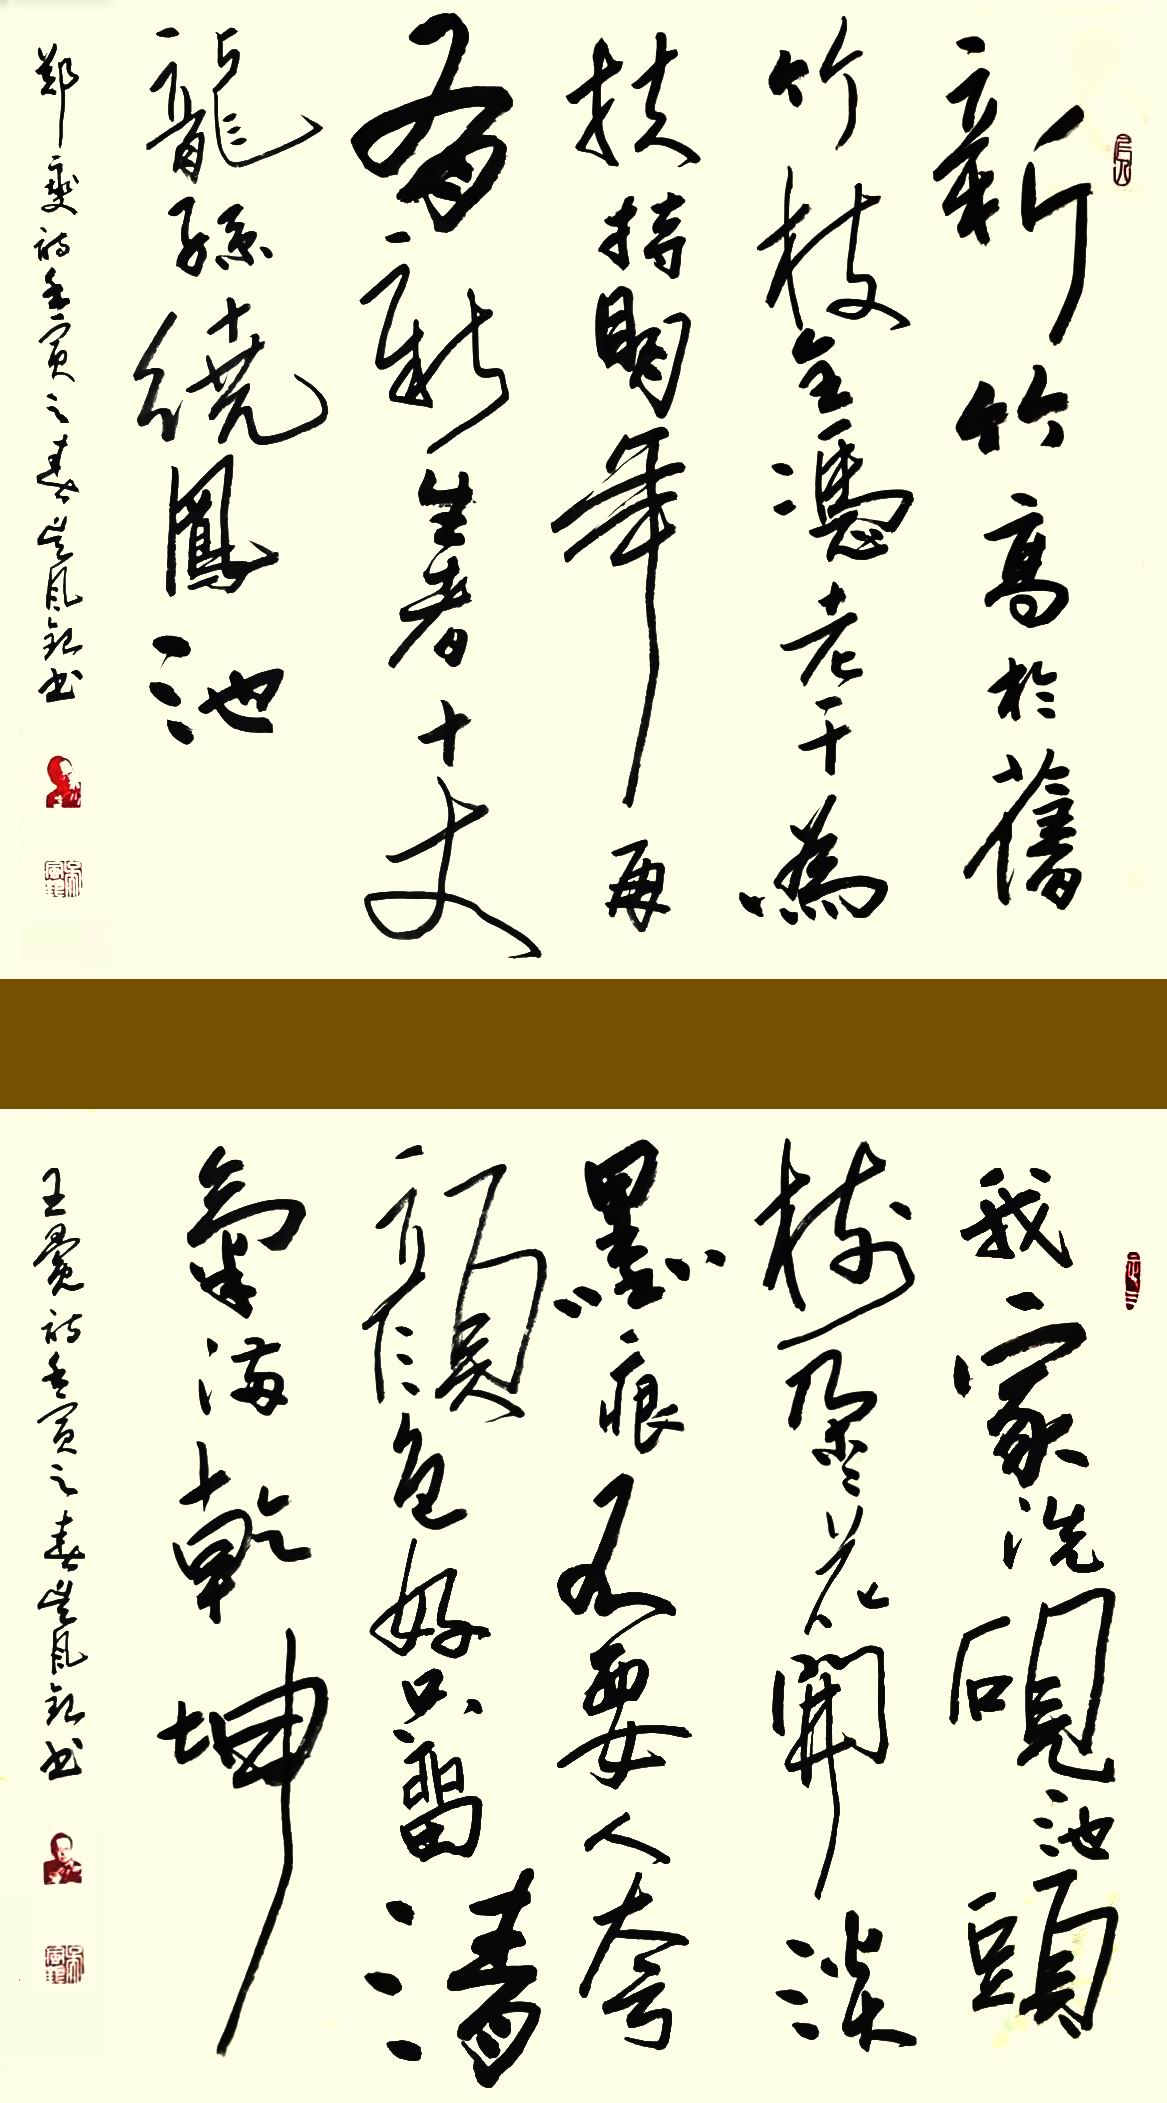 新竹高於舊
竹枝全憑老干為
扶持明年再
有新生者十丈
龍孫繞鳳池
郑燮詩壬寅之春風书
我家洗硯池頭
樹朵々花開淡
墨痕不要人夸
顏色好只留清
氣滿乾坤
王冕詩壬寅之春風书